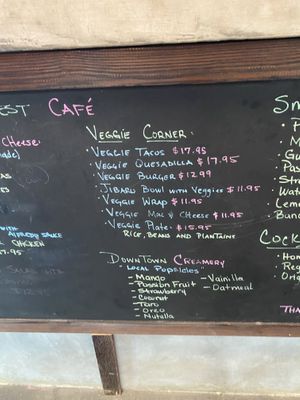 EST CAFÉ
VEGGIE CORNER:
- VEGGIE TACOS $17.95
- VEGGIE QUESADILLA $17.95
- VEGGIE BURGER $12.99
- JIBARU BOWL WITH VEGGIES $11.95
- VEGGIE WRAP $11.95
- VEGGIE MAC & CHEESE $11.95
- VEGGIE PLATE $15.95
RICE, BEANS AND PLANTAINS
DOWNTOWN CREAMERY
"LOCAL POPSICLES"
- Mango
- Passion Fruit
- Strawberry
- Coconut
- Taro
- Oreo
- Nutella
- Vainilla
- Oatmeal
CHEESE:
WITH
ALFREDO SAUCE
CHICKEN
17.95
SALAD WITH
SM
COCK
THA